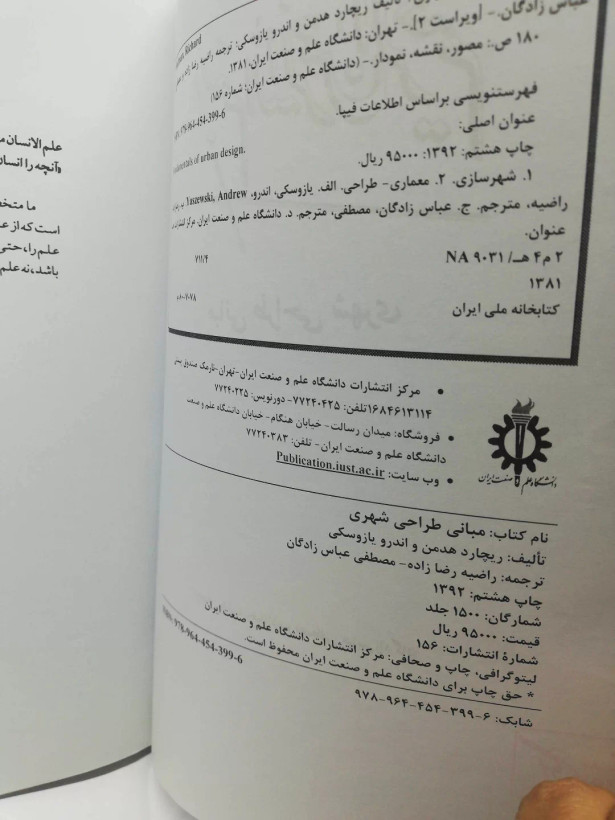 علم الانسان م
«آنچه را انسان
ما متخص
است که از ع
علم را، حتی
باشد، نه علم
Richard
تألیف ریچارد هدمن و اندرو یازوسکی؛ ترجمه راضیه رضا زاده
عباس زادگان.- [ویراست ۲].- تهران: دانشگاه علم و صنعت ایران، ۱۳۸۱.
۱۸۰ ص.: مصور، نقشه، نمودار.- (دانشگاه علم و صنعت ایران؛ شماره ۱۵۶)
978-964-454-399-6
فهرستنویسی براساس اطلاعات فیپا.
عنوان اصلی:
of urban design.
چاپ هشتم: ۱۳۹۲: ۹۵۰۰۰ ریال.
۱. شهرسازی. ۲. معماری- طراحی. الف. یازوسکی، اندرو، Yaszewski, Andrew.
راضیه، مترجم. ج. عباس زادگان، مصطفی، مترجم. د. دانشگاه علم و صنعت ایران. مرکز انتشارات
عنوان.
۲ م۴ هـ/ NA ۹۰۳۱
۷۱۱/۴
۱۳۸۱
کتابخانه ملی ایران
• مرکز انتشارات دانشگاه علم و صنعت ایران-تهران-نارمک صندوق پستی
۱۶۸۴۶۱۳۱۱۴تلفن: ۷۷۲۴۰۴۲۵- دورنویس: ۷۷۲۴۰۲۲۵
• فروشگاه: میدان رسالت- خیابان هنگام- خیابان دانشگاه علم و صنعت
دانشگاه علم و صنعت ایران- تلفن: ۷۷۲۴۰۳۸۳
• وب سایت: Publication.iust.ac.ir
دانشگاه علم و صنعت ایران
نام کتاب: مبانی طراحی شهری
تألیف: ریچارد هدمن و اندرو یازوسکی
ترجمه: راضیه رضا زاده- مصطفی عباس زادگان
چاپ هشتم: ۱۳۹۲
شمارگان: ۱۵۰۰ جلد
قیمت: ۹۵۰۰۰ ریال
شمارهٔ انتشارات: ۱۵۶
لیتوگرافی، چاپ و صحافی: مرکز انتشارات دانشگاه علم و صنعت ایران
* حق چاپ برای دانشگاه علم و صنعت ایران محفوظ است.
ISBN: 978-964-454-399-6
شابک: ۶-۳۹۹-۴۵۴-۹۶۴-۹۷۸